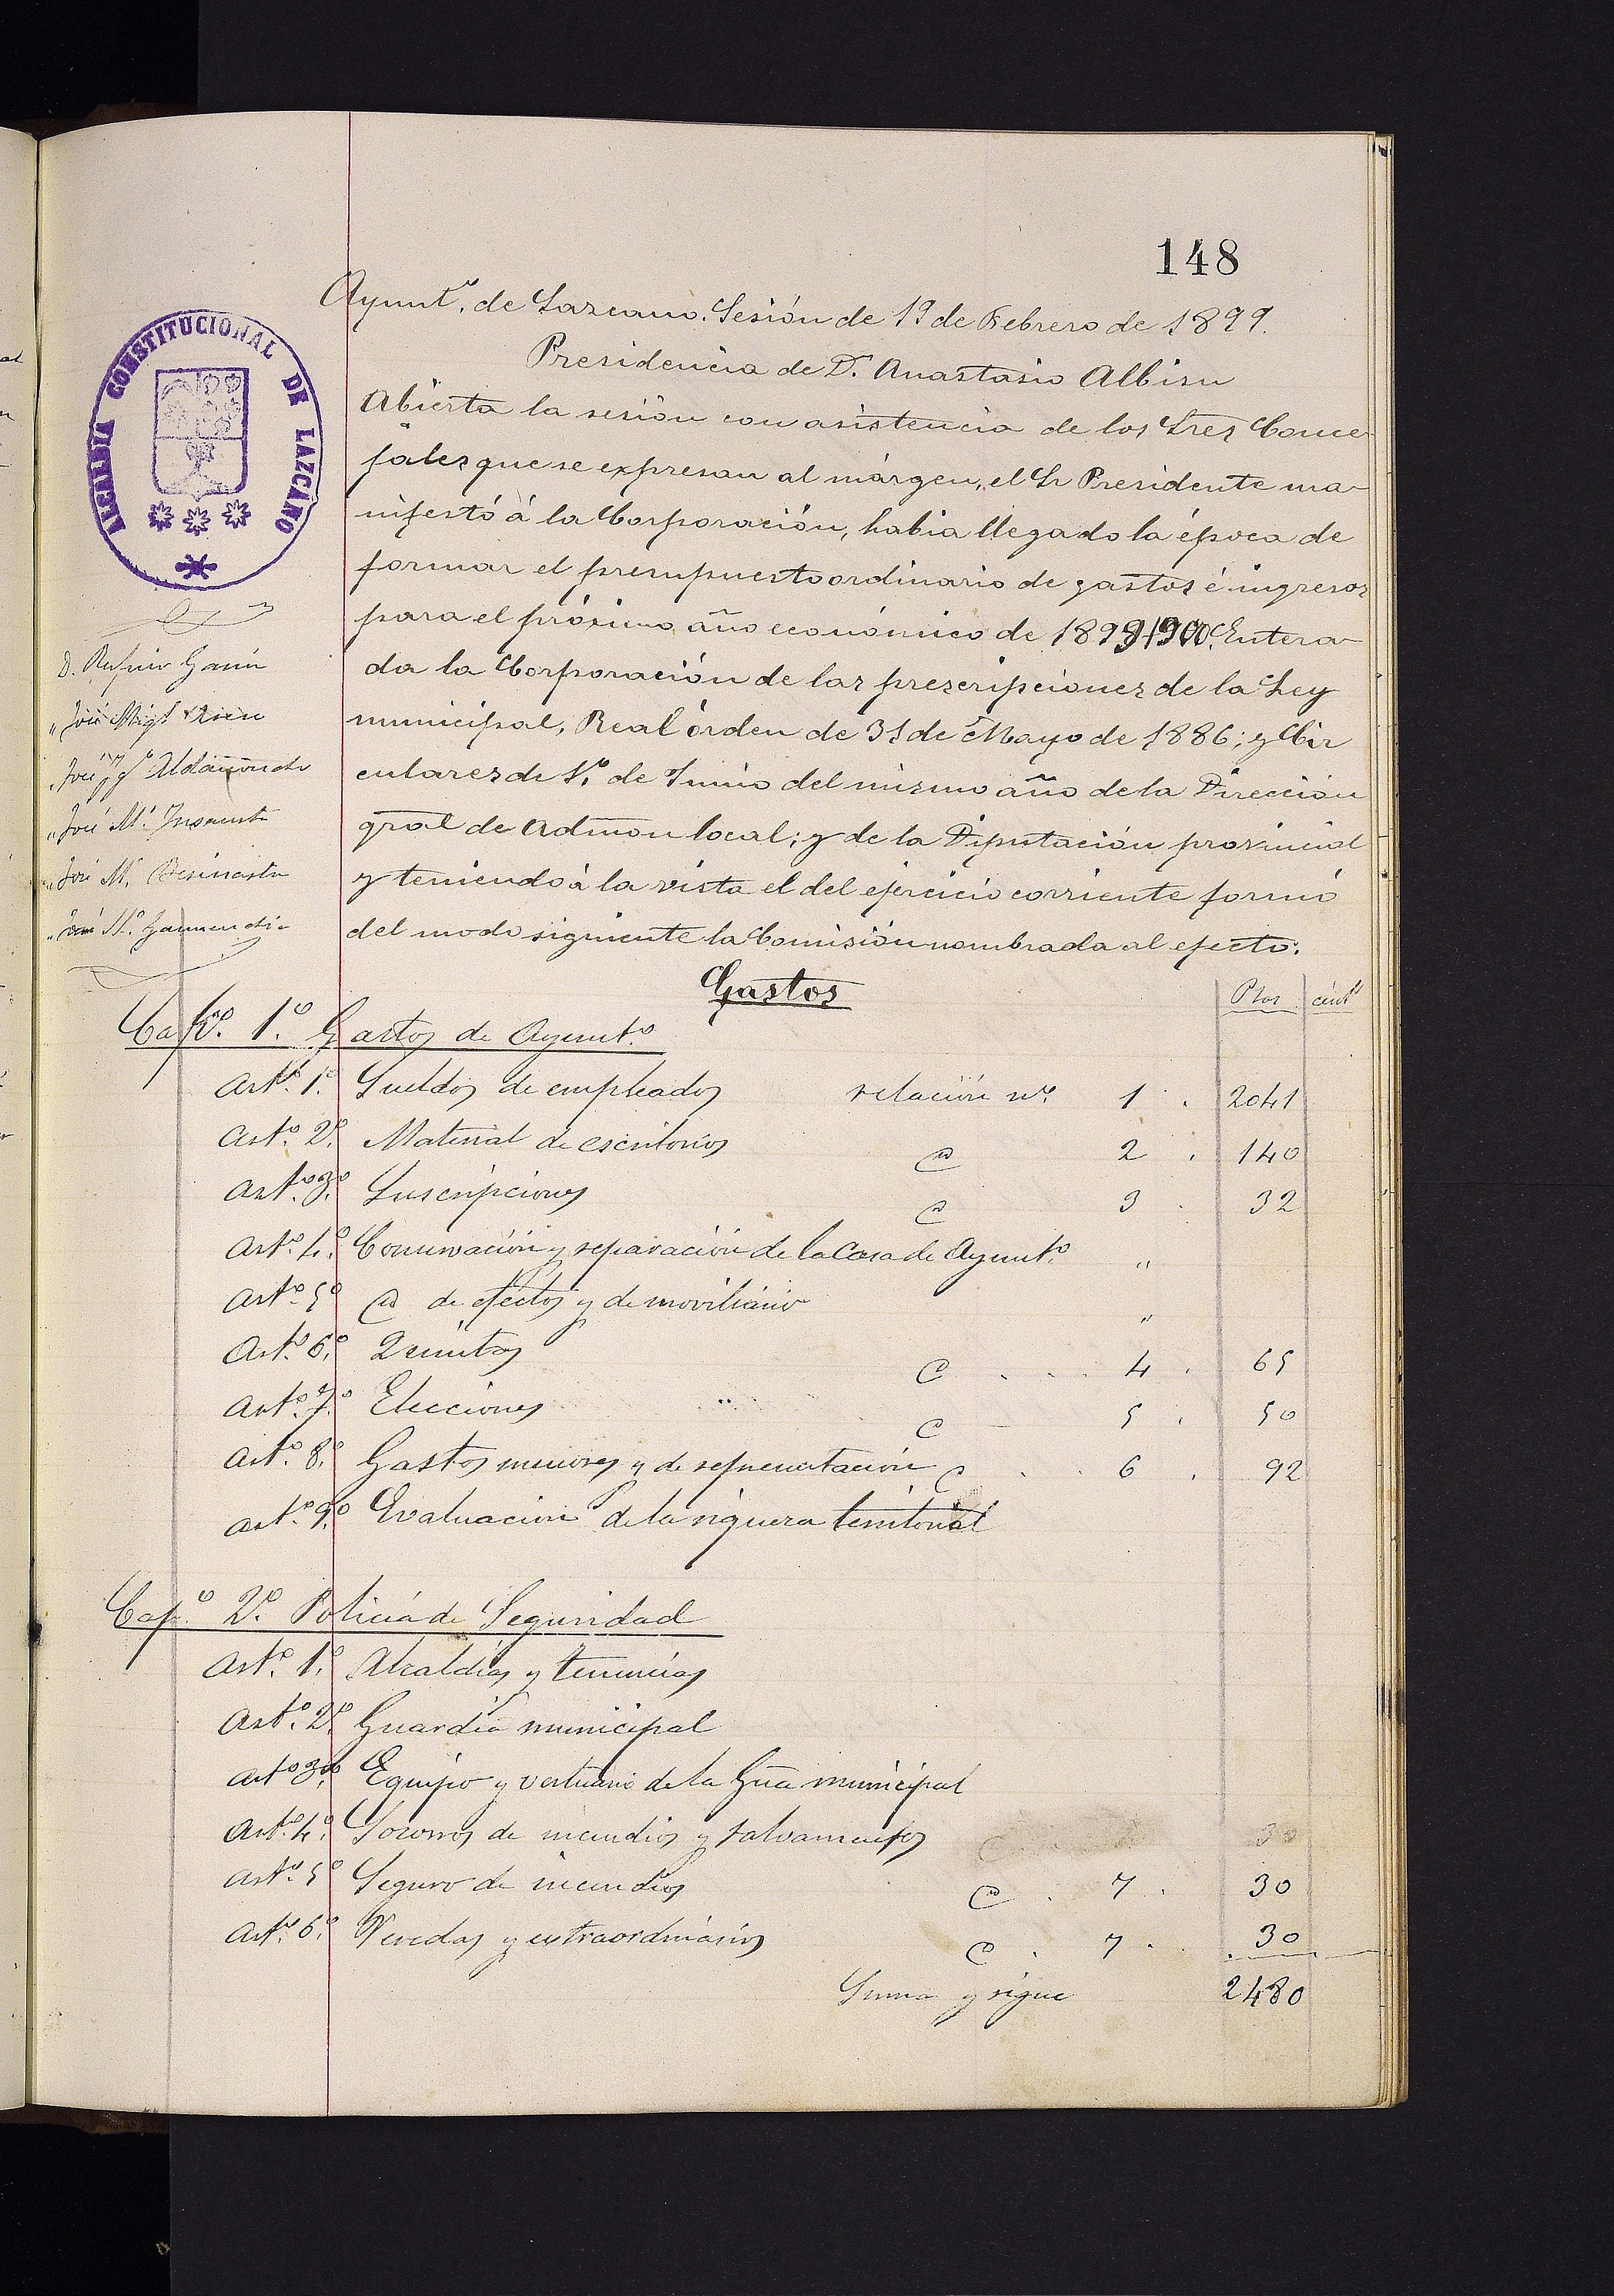 148
Ayuntº. de Lazcano. Sesión de 19 de Febrero de 1899.
Presidencia de D. Anastasio Albisu
ALCALDIA CONSTITUCIONAL DE LAZCANO
Abierta la sesión con asistencia de los Sres Conce
jales que se expresan al márgen, el Sr Presidente ma-
nifestó á la Corporación, habia llegado la época de
formar el presupuesto ordinario de gastos é ingresos
para el próximo año económico de 1899/900. Entera-
da la Corporación de las prescripciones de la Ley
municipal, Real órden de 31 de Mayo de 1886; y Cir
culares de 1º de Junio del mismo año de la Dirección
gral de Admon local; y de la Diputación provincial
y teniendo á la vista el del ejercicio corriente formó
del modo siguiente la Comisión nombrada al efecto:
D. Rufino Garin
" José Migl
" José Aldasoro
" José Mª Insausti
" José M.
" José Mª Garmendia
Gastos
Ptas cént
Capº. 1º. Gastos de Ayuntº.
Artº. 1º. Sueldos de empleados relación nº. 1 . 2041
Artº. 2º. Material de escritorios id 2 . 140
Artº. 3º. Suscripciones id 3 . 32
Artº. 4º. Conservación y reparación de la Casa de Ayuntº. "
Artº. 5º id de efectos y de moviliario "
Artº. 6º. Quintas id 4 . 65
Artº. 7º Elecciones " id 5 . 50
Artº. 8º. Gastos menores y de representación id 6 . 92
Artº. 9º. Evaluación de la riqueza territorial
Capº. 2º. Policia de Seguridad
Artº. 1º. Alcaldias y tenencias
Artº. 2º. Guardia municipal
Artº 3º. Equipo y vestuario de la Gua municipal
Artº. 4º. Socorros de incendios y salvamentos 30
Artº. 5º Seguro de incendios id . 7 . 30
Artº. 6º. Veredas y extraordinarios id . 7 . 30
Suma y sigue 2480